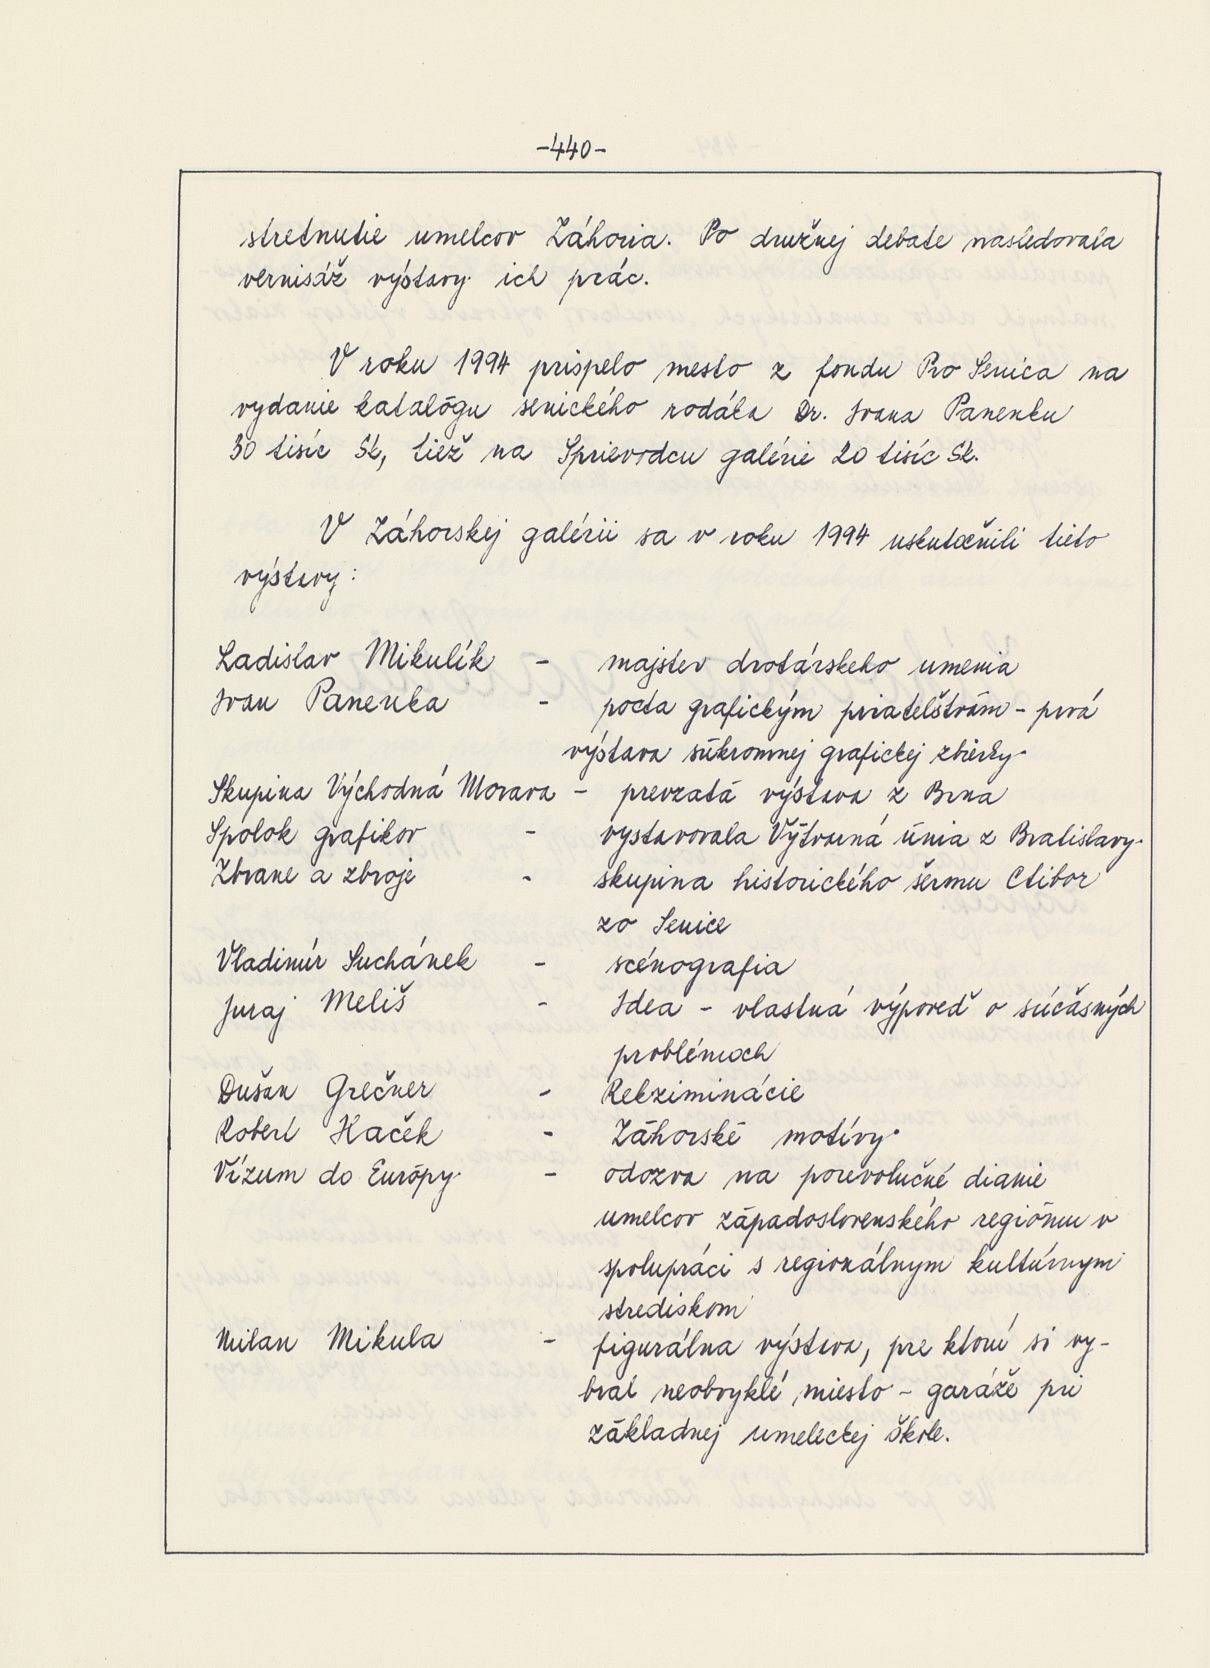 -440-
stretnutie umelcov Záhoria. Po družnej debate nasledovala
vernisáž výstavy ich prác.
V roku 1994 prispelo mesto z fondu Pro Senica na
vydanie katalógu senického rodáka Dr. Ivana Panenku
30 tisíc Sk, tiež na Sprievodcu galérie 20 tisíc Sk.
V Záhorskej galérii sa v roku 1994 uskutočnili tieto
výstavy:
Ladislav Mikulík - majster drotárskeho umenia
Ivan Panenka - pocta grafickým priateľstvám - prvá
výstava súkromnej grafickej zbierky
Skupina Východná Morava - prevzatá výstava z Brna
Spolok grafikov - vystavovala Výtvarná únia z Bratislavy
Zbrane a zbroje - skupina historického šermu Ctibor
zo Senice
Vladimír Suchánek - scénografia
Juraj Meliš - Idea - vlastná výpoveď o súčasných
problémoch
Dušan Grečner - Rekziminácie
Robert Haček - Záhorské motívy
Vízum do Európy - odozva na porevolučné dianie
umelcov západoslovenského regiónu v
spolupráci s regionálnym kultúrnym
strediskom
Milan Mikula - figurálna výstava, pre ktorú si vy-
bral neobvyklé miesto - garáže pri
základnej umeleckej škole.